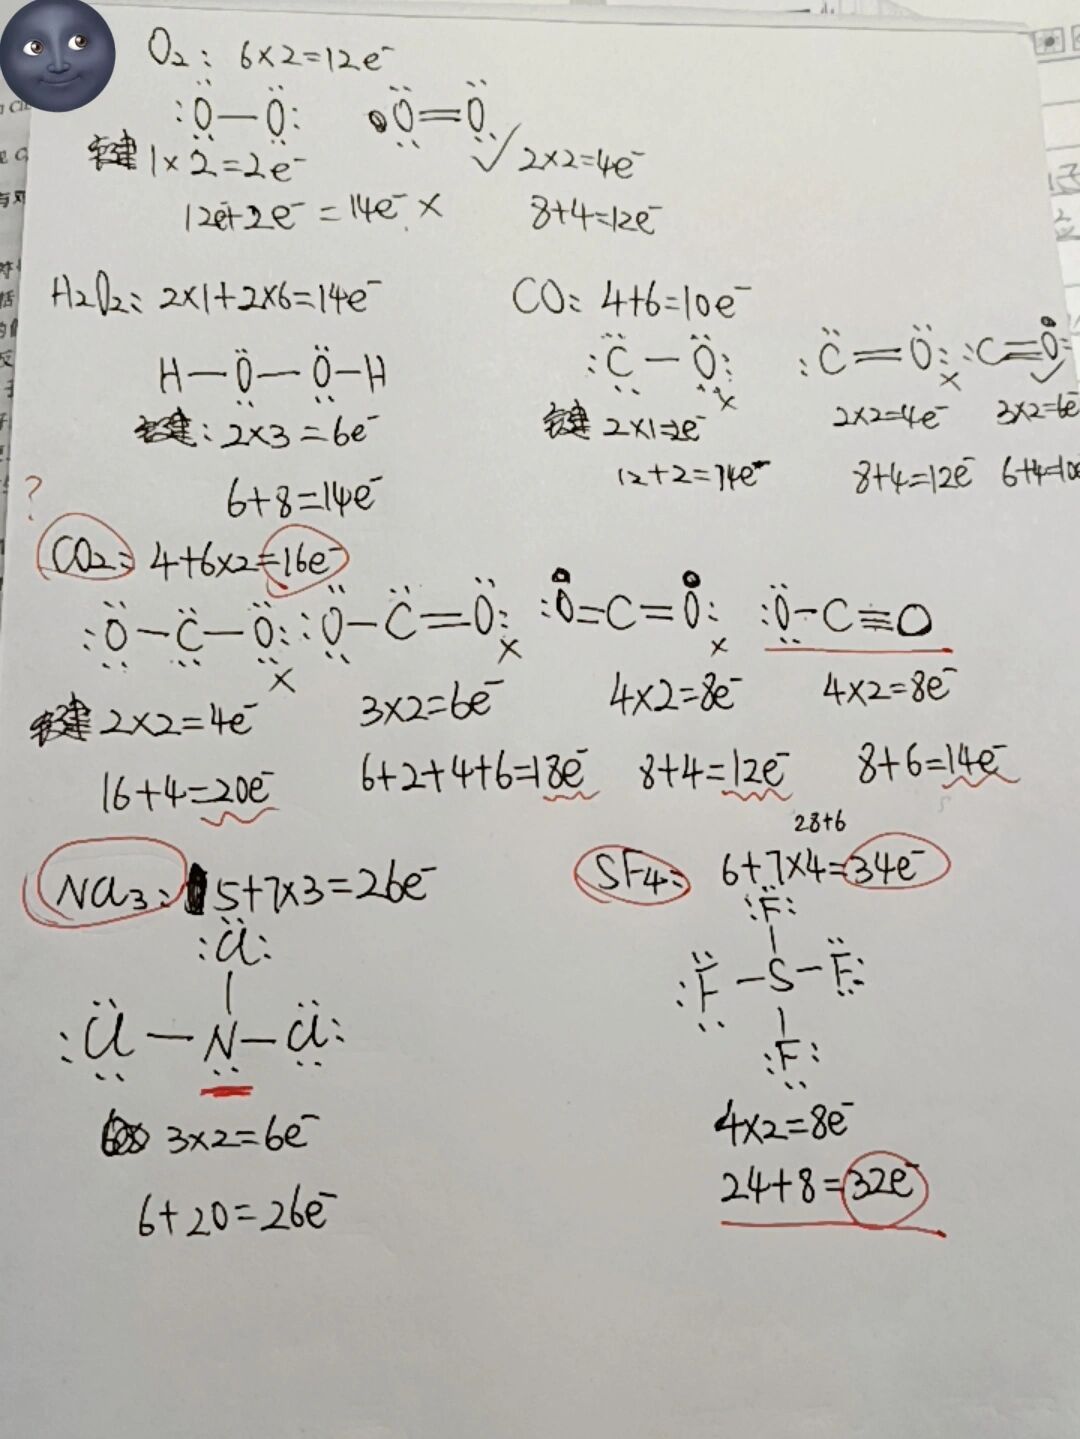 O₂: 6×2=12e⁻
:Ö—Ö: Ö=Ö
键 1×2=2e⁻ ✓ 2×2=4e⁻
12e⁻+2e⁻=14e⁻ × 8+4=12e⁻
H₂O₂: 2×1+2×6=14e⁻
H—Ö—Ö—H
键: 2×3=6e⁻
6+8=14e⁻
CO: 4+6=10e⁻
:C̈—Ö: × :C̈=Ö: × :C≡O: ✓
键 2×1=2e⁻ 2×2=4e⁻ 3×2=6e⁻
12+2=14e⁻ 8+4=12e⁻ 6+4=10e
?
CO₂: 4+6×2=16e⁻
:Ö—C̈—Ö: × :Ö—C̈=Ö: × :O=C=O: × :Ö—C≡O
键 2×2=4e⁻ 3×2=6e⁻ 4×2=8e⁻ 4×2=8e⁻
16+4=20e⁻ 6+2+4+6=18e⁻ 8+4=12e⁻ 8+6=14e⁻
NCl₃: 5+7×3=26e⁻
:C̈l:
|
:C̈l—N—C̈l:
3×2=6e⁻
6+20=26e⁻
28+6
SF₄: 6+7×4=34e⁻
:F̈:
|
:F̈—S—F̈:
|
:F:
4×2=8e⁻
24+8=32e⁻